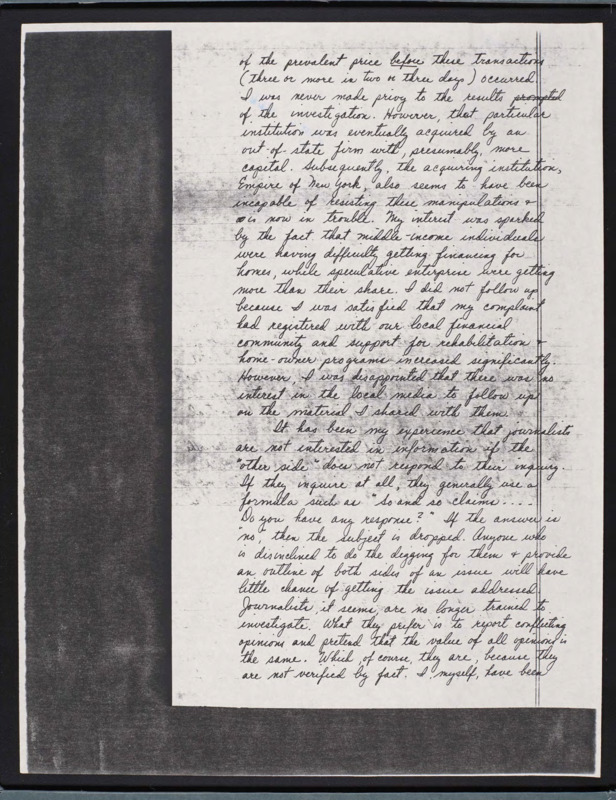 of the prevalent price before these transactions
(three or more in two or three days) occurred.
I was never made privy to the results prompted
of the investigation. However, that particular
institution was eventually acquired by an
out-of-state firm with, presumably, more
capital. Subsequently, the acquiring institution,
Empire of New York, also seems to have been
incapable of resisting these manipulations &
is now in trouble. My interist was sparked
by the fact that middle-income individuals
were having difficulty getting financing for
homes, while speculative enterprise were getting
more than their share. I did not follow up
because I was satisfied that my complaint
had registered with our local financial
community and support for rehabilitation &
home-owner programs increased significantly.
However, I was disappointed that there was no
interest in the local media to follow up
on the material I shared with them.
It has been my experience that journalists
are not interested in information if the
"other side" does not respond to their inquiry.
If they inquire at all, they generally use a
formula such as "So and so claims....
Do you have any response?" If the answer is
"no," then the subject is dropped. Anyone who
is disinclined to do the digging for them & provide
an outline of both sides of an issue will have
little chance of getting the issue addressed.
Journalists, it seems, are no longer trained to
investigate. What they prefer is to report conflicting
opinions and pretend that the value of all opinions is
the same. Which, of course, they are, because they
are not verified by fact. I, myself, have been